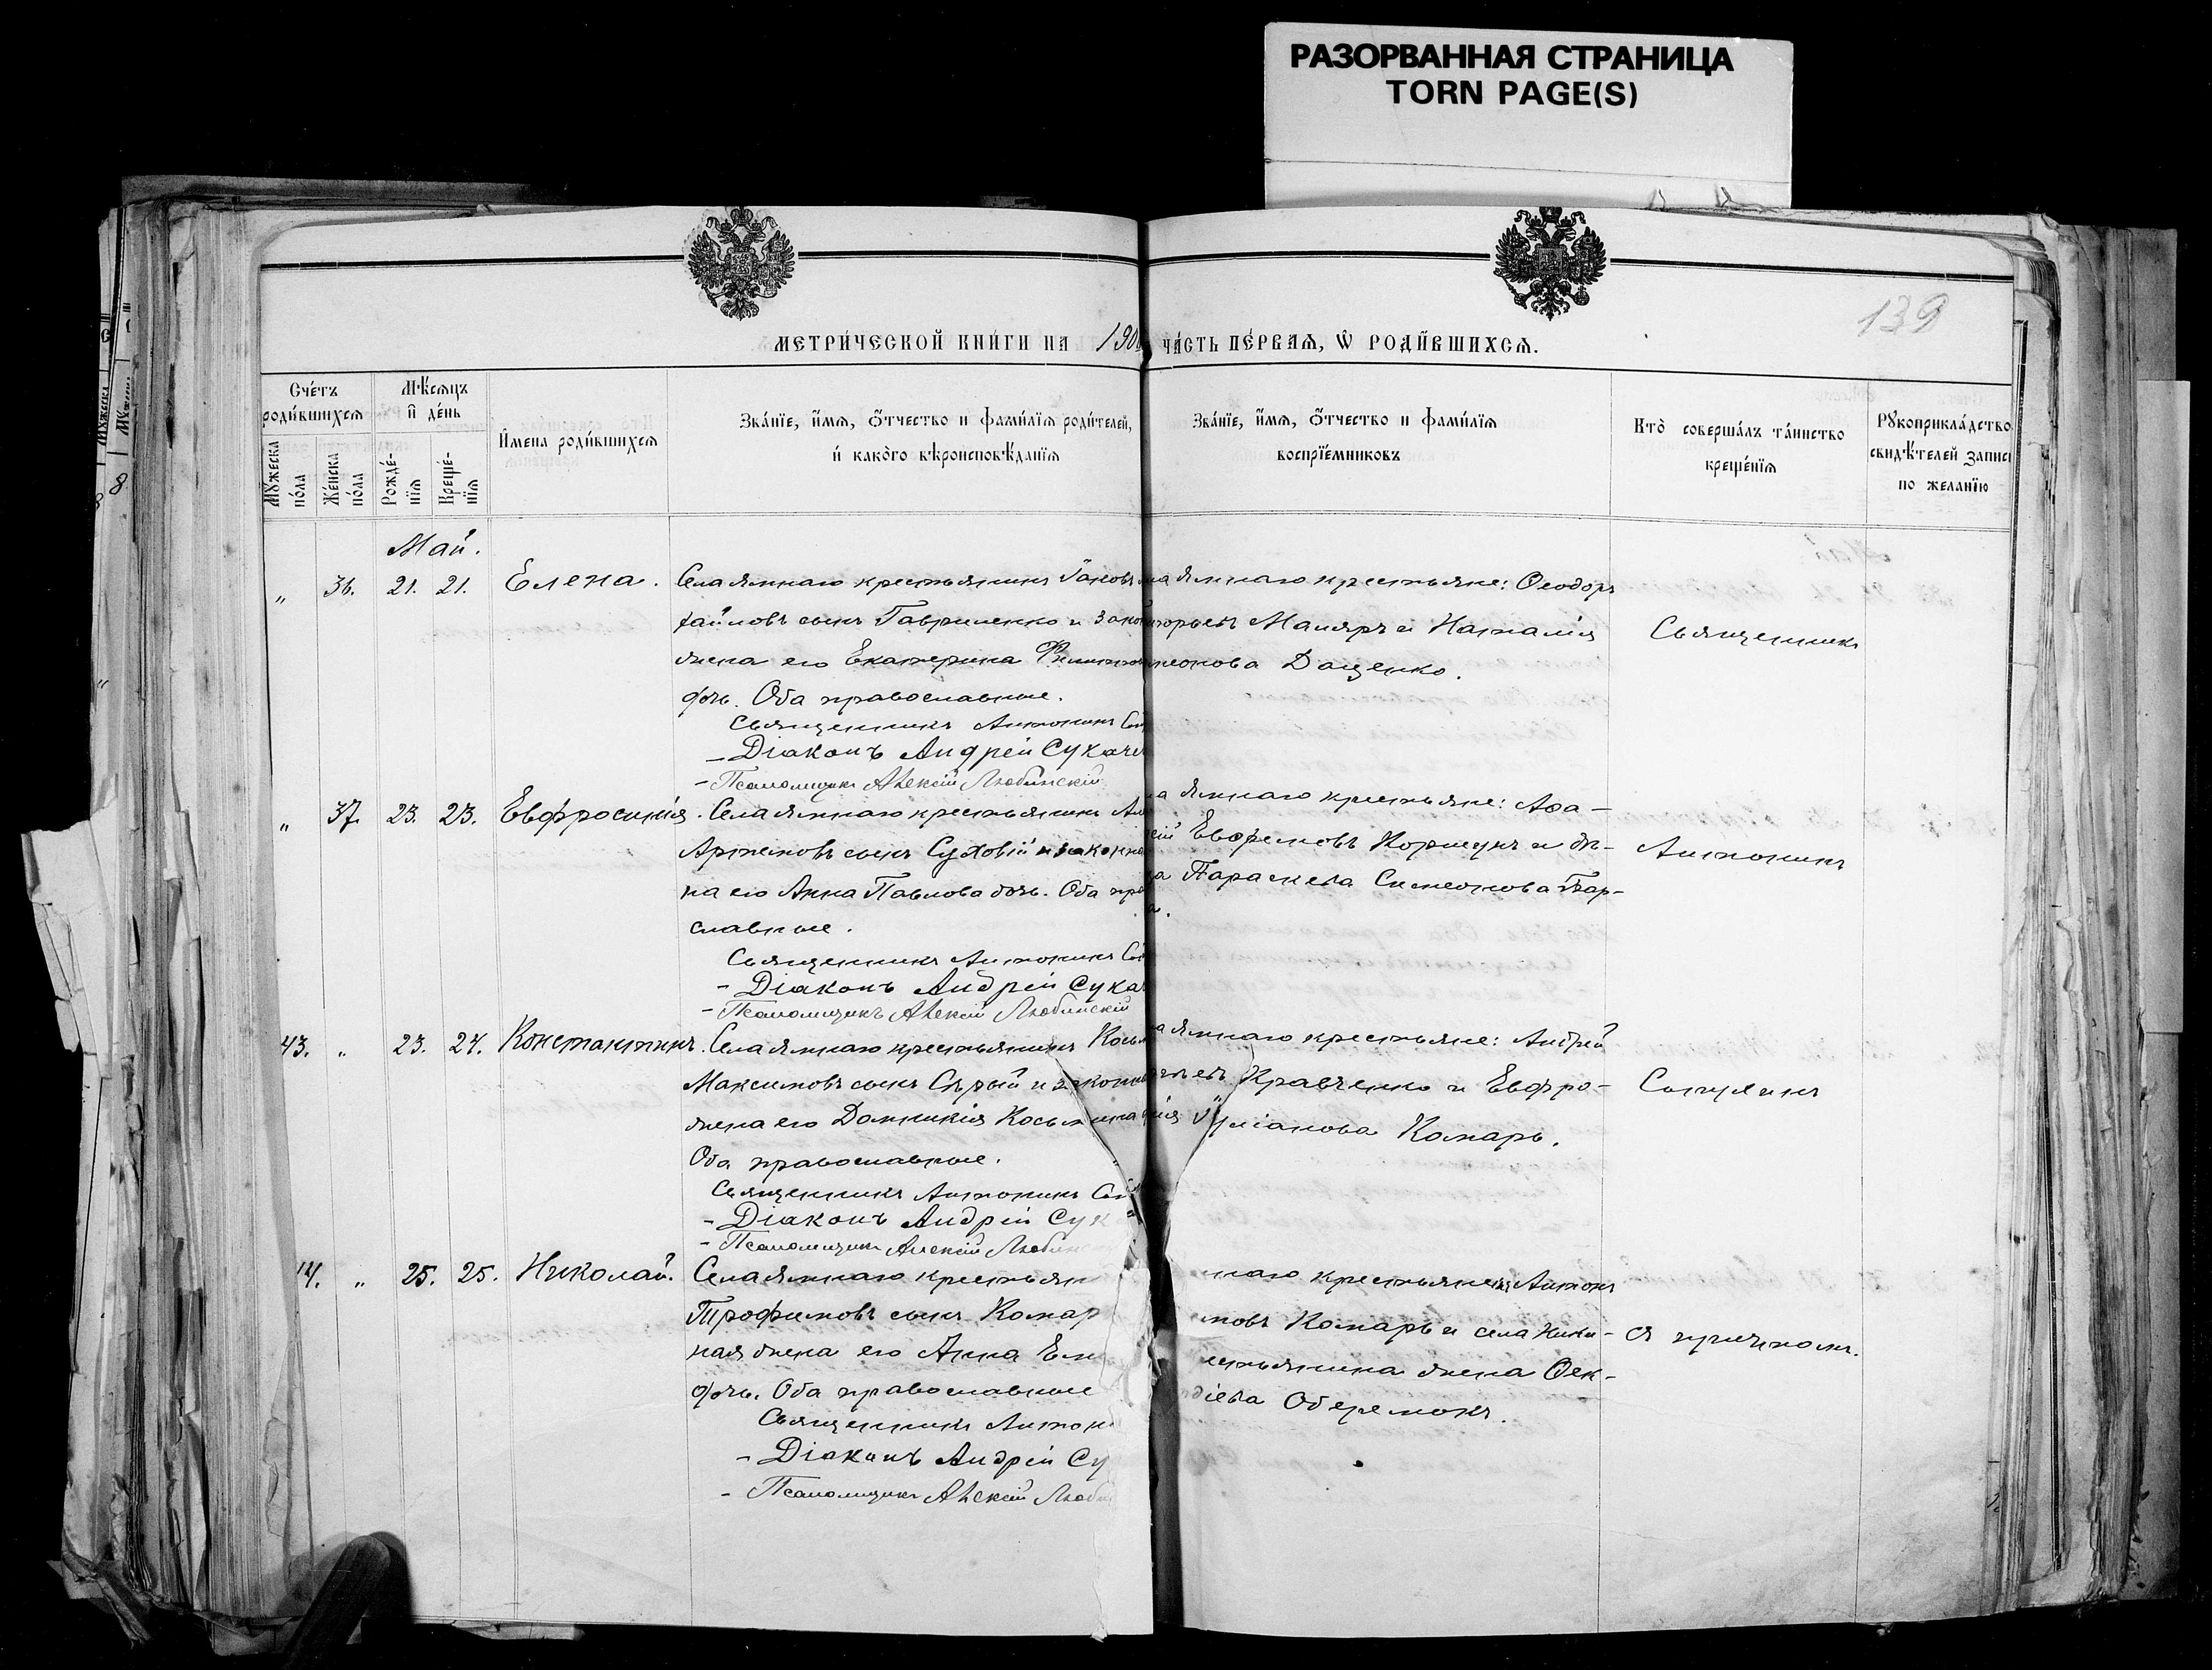 РАЗОРВАННАЯ СТРАНИЦА
TORN PAGE(S)
139
МЕТРИ́ЧЕСКОЙ КНИ́ГИ НА 190
ЧА́СТЬ ПЕ́РВАЯ, Ѡ РОДИ́ВШИХСЯ.
Сче́тъ роди́вшихся
Му́жеска по́ла
Же́нска по́ла
Мѣ́сяцъ и де́нь
Рожде́-нія
Креще́-нія
И́мена роди́вшихся
Зва́ніе, и́мя, о́тчество и фами́лія роди́телей,
и како́го вѣроисповѣ́данія
Зва́ніе, и́мя, о́тчество и фами́лія
воспріе́мниковъ
Кто̀ соверша́лъ та́инство
креще́нія
Рукоприкла́дство
свидѣ́телей записи
по жела́нію
Май.
„ 36. 21. 21. Елена.
Села Ямнаго крестьянинъ Іаковъ
хайловъ сынъ Гавриленко и закон
жена его Екатерина Филиппов
дочь. Оба православные.
Священникъ Антонинъ
– Діаконъ Андрей Сукаче
– Псаломщикъ Алексій Любинскій
Ямнаго крестьяне: Ѳеодоръ
Маляръ и Наталія
Даценко.
Священникъ
„ 37. 23. 23. Евфросинія.
Села Ямнаго крестьянинъ
Артемовъ сынъ Суховій и законна
на его Анна Павлова дочь. Оба пра
славные.
Священникъ Антонинъ
– Діаконъ Андрей Сука
– Псаломщикъ Алексій Любинскій
Ямнаго крестьяне: Аѳа–
сій Евфремовъ Коршунъ и дѣ–
ца Параскева Симеонова Пар–
Антонинъ
43. „ 23. 24. Константинъ.
Села Ямнаго крестьянинъ Косьм
Максимовъ сынъ Сѣрый и законн
жена его Домникія Косьмина
Оба православные.
Священникъ Антонинъ
– Діаконъ Андрей Сук
– Псаломщикъ Алексій Любинс
Ямнаго крестьяне: Андрей
Кравченко и Евфро–
нія Іуліанова Комарь.
Сы
14. „ 25. 25. Николай.
Села Ямнаго крестьян
Трофимовъ сынъ Комар
ная жена его Анна Ем
дочь. Оба православные
Священникъ Антон
– Діаконъ Андрей Су
– Псаломщикъ Алексій Люби
наго крестьяне: Антонъ
мовъ Комарь и села Ники–
стьянина жена Ѳек–
діева Оберемокъ.
съ причтомъ.